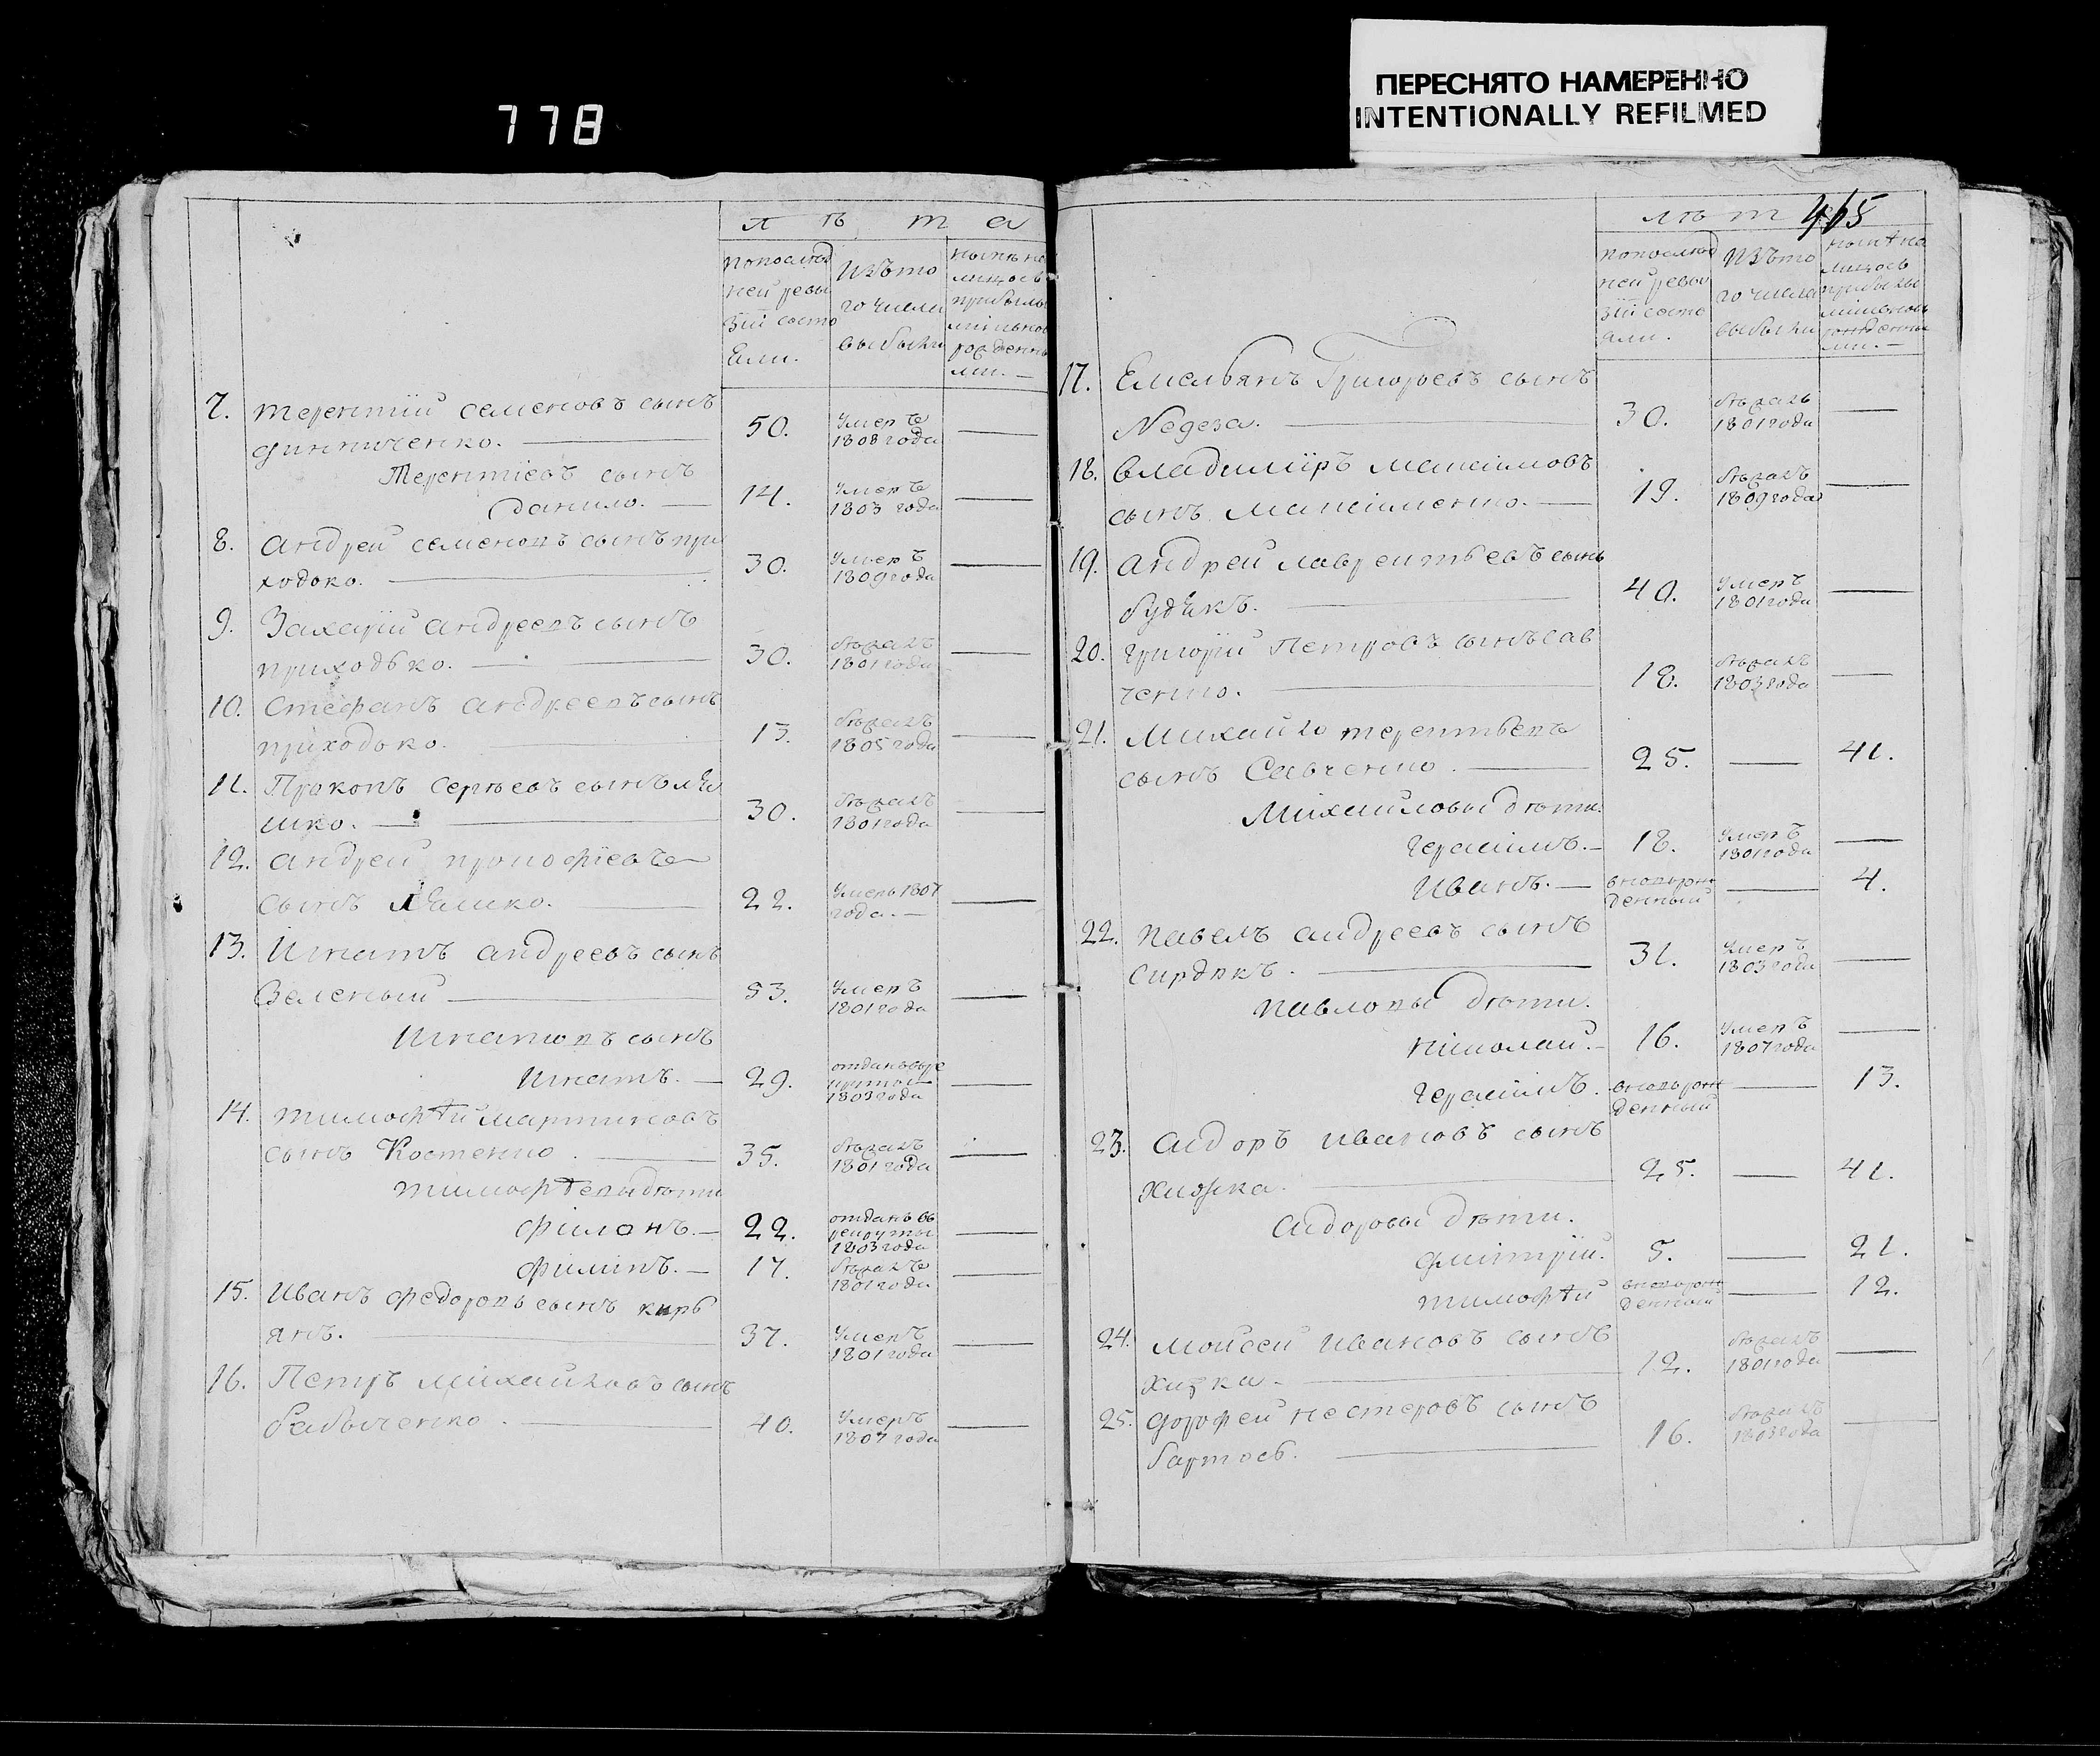 778
ПЕРЕСНЯТО НАМЕРЕННО
INTENTIONALLY REFILMED
л ѣ т а
по послед
ней реви
зіи состо
яли.
Изъ то
го числа
выбыли
ныне на
лицо съ
прибылы
ми и вно
рожденны
ми. —
7. Терентий Семеновъ сынъ
50. умеръ 1808 года —
Терентіевъ сынъ
Данило. — 14. умеръ 1803 года —
8. Андрей Семеновъ сынъ при
ходько. — 30. умеръ 1809 года —
9. Захарій Андреевъ сынъ
приходько. — 30. бѣжалъ 1801 года —
10. Стефанъ Андреевъ сынъ
приходько. 13. бѣжалъ 1805 года —
11. Прокопъ Сергѣевъ сынъ ля
шко. — 30. бѣжалъ 1801 года —
12. Андрей прокофіевъ
сынъ Ляшко. — 22. умеръ 1807 года. — —
13. Игнатъ Андреевъ сынъ
Зеленый — 53. умеръ 1801 года —
Игнатовъ сынъ
Игнатъ. — 29. отданъ въ рекруты 1803 года —
14. Тимофѣй Мартиновъ
сынъ Костенко. — 35. бѣжалъ 1801 года —
Тимофѣевы дѣти
Филонъ. — 22. отданъ въ рекруты 1803 года —
Филипъ. — 17. бѣжалъ 1801 года —
15. Иванъ Федоровъ сынъ кирь
янъ. — 37. умеръ 1801 года —
16. Петръ Михайловъ сынъ
Рабыченко. — 40. умеръ 1807 года —
465
л ѣ т
по послед
ней реви
зіи состо
яли.
Изъ то
го числа
выбыли
ныне на
лицо съ
прибылы
ми и вновь
рожденны
ми. —
17. Емельянъ Григорьевъ сынъ
30. бѣжалъ 1801 года —
18. Владиміръ Максімовъ
сынъ Максіменко. — 19. бѣжалъ 1809 года —
19. Андрей Лаврентьевъ сынъ
будякъ. — 40. умеръ 1801 года —
20. Григорій Петровъ сынъ Сав
ченко. — 18. бѣжалъ 1803 года —
21. Михайло Терентьевъ
сынъ Савченко. — 25. — 41.
Михайловы дѣти.
Герасімъ. — 18. умеръ 1801 года —
Иванъ. — вновьрож денный — 4.
22. Павелъ Андреевъ сынъ
Сирдякъ. — 31. умеръ 1803 года —
Павловы дѣти.
Ніколай. — 16. умеръ 1807 года —
Герасімъ. вновьрож денный — 13.
23. Сидоръ Ивановъ сынъ
Хижка. — 25. — 41.
Сидоровы дѣти.
Дмітрій. 5. — 21.
Тимофѣй вновьрож денный — 12.
24. Мойсей Ивановъ сынъ
Хижка. — 12. бѣжалъ 1801 года —
25. Дорофей Нестеровъ сынъ
бартось. — 16. бѣжалъ 1803 года —